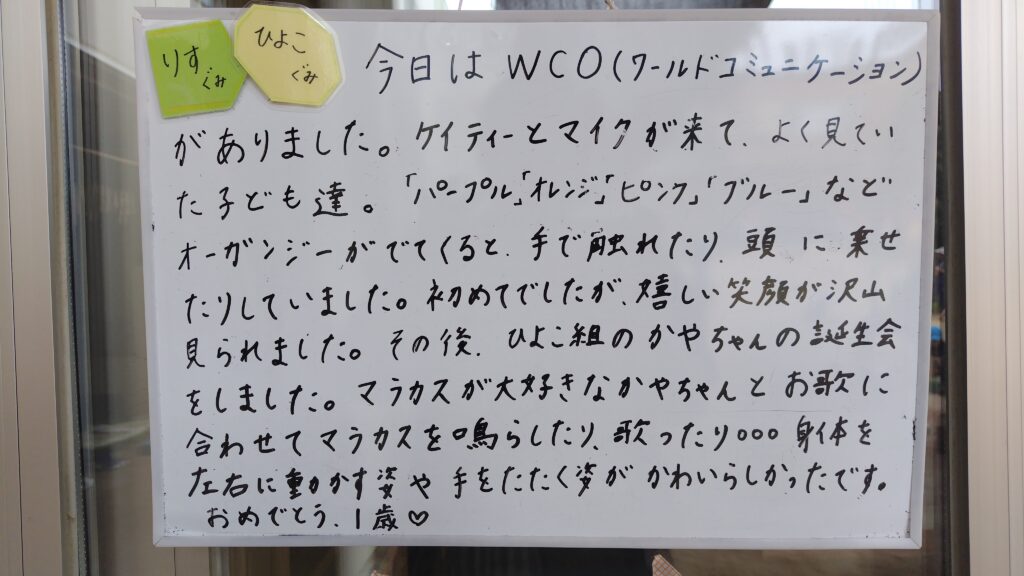 りす
ぐみ
ひよこ
ぐみ
今日は WCO(ワールドコミュニケーション)
がありました。ケイティーとマイクが来て、よく見てい
た子ども達。「パープル」「オレンジ」「ピンク」「ブルー」など
オーガンジーがでてくると、手で触れたり、頭に乗せ
たりしていました。初めてでしたが、嬉しい笑顔が沢山
見られました。その後、ひよこ組のかやちゃんの誕生会
をしました。マラカスが大好きなかやちゃんとお歌に
合わせてマラカスを鳴らしたり、歌ったり○○○身体を
左右に動かす姿や手をたたく姿がかわいらしかったです。
おめでとう、1歳♡